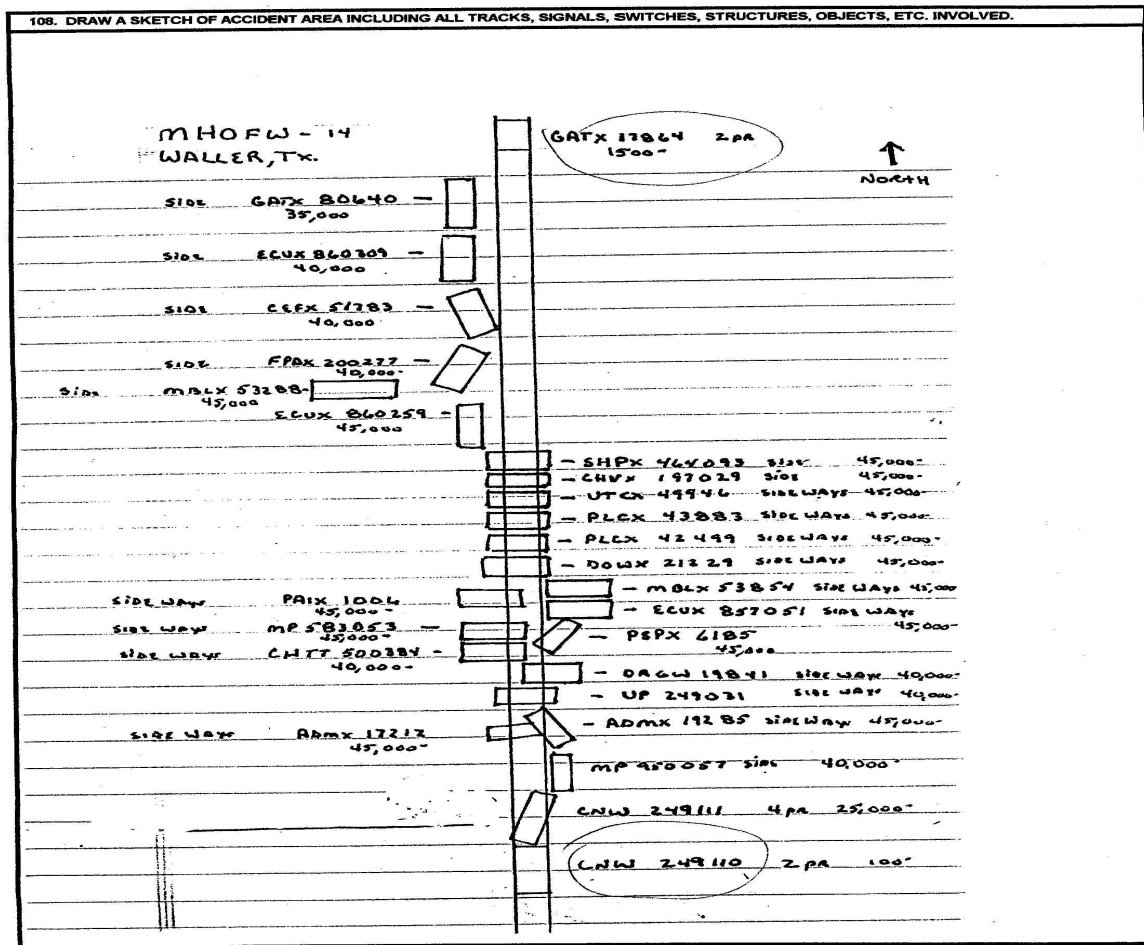 108. DRAW A SKETCH OF ACCIDENT AREA INCLUDING ALL TRACKS, SIGNALS, SWITCHES, STRUCTURES, OBJECTS, ETC. INVOLVED.
MHOFW - 14
WALLER, TX.
GATX 17864 2 pr
1500-
NORTH
SIDE GATX 80640 -
35,000
SIDE ECUX 860309 -
40,000
SIDE CEFX 51783 -
40,000
SIDE FPAX 200277 -
40,000-
SIDE MBLX 53288-
45,000
ECUX 860259 -
45,000
- SHPX 464093 SIDE 45,000-
- CHVX 197029 SIDE 45,000-
- UTCX 49946 SIDEWAYS 45,000-
- PLCX 43883 SIDEWAYS 45,000-
- PLCX 42499 SIDEWAYS 45,000-
- DOWX 21229 SIDEWAYS 45,000-
- MBLX 53854 SIDEWAYS 45,000
SIDEWAYS PAIX 1006
45,000-
- ECUX 857051 SIDEWAYS
45,000-
SIDEWAYS MP 583053 -
45,000-
- PSPX 6185
45,000
SIDEWAYS CHTT 500384 -
40,000-
- DRGW 19841 SIDEWAYS 40,000-
- UP 249031 SIDEWAYS 40,000-
- ADMX 19285 SIDEWAYS 45,000-
SIDEWAYS ADMX 17212
45,000-
MP 950057 SIDE 40,000-
CNW 249111 4 pr 25,000-
CNW 249110 2 pr 100-